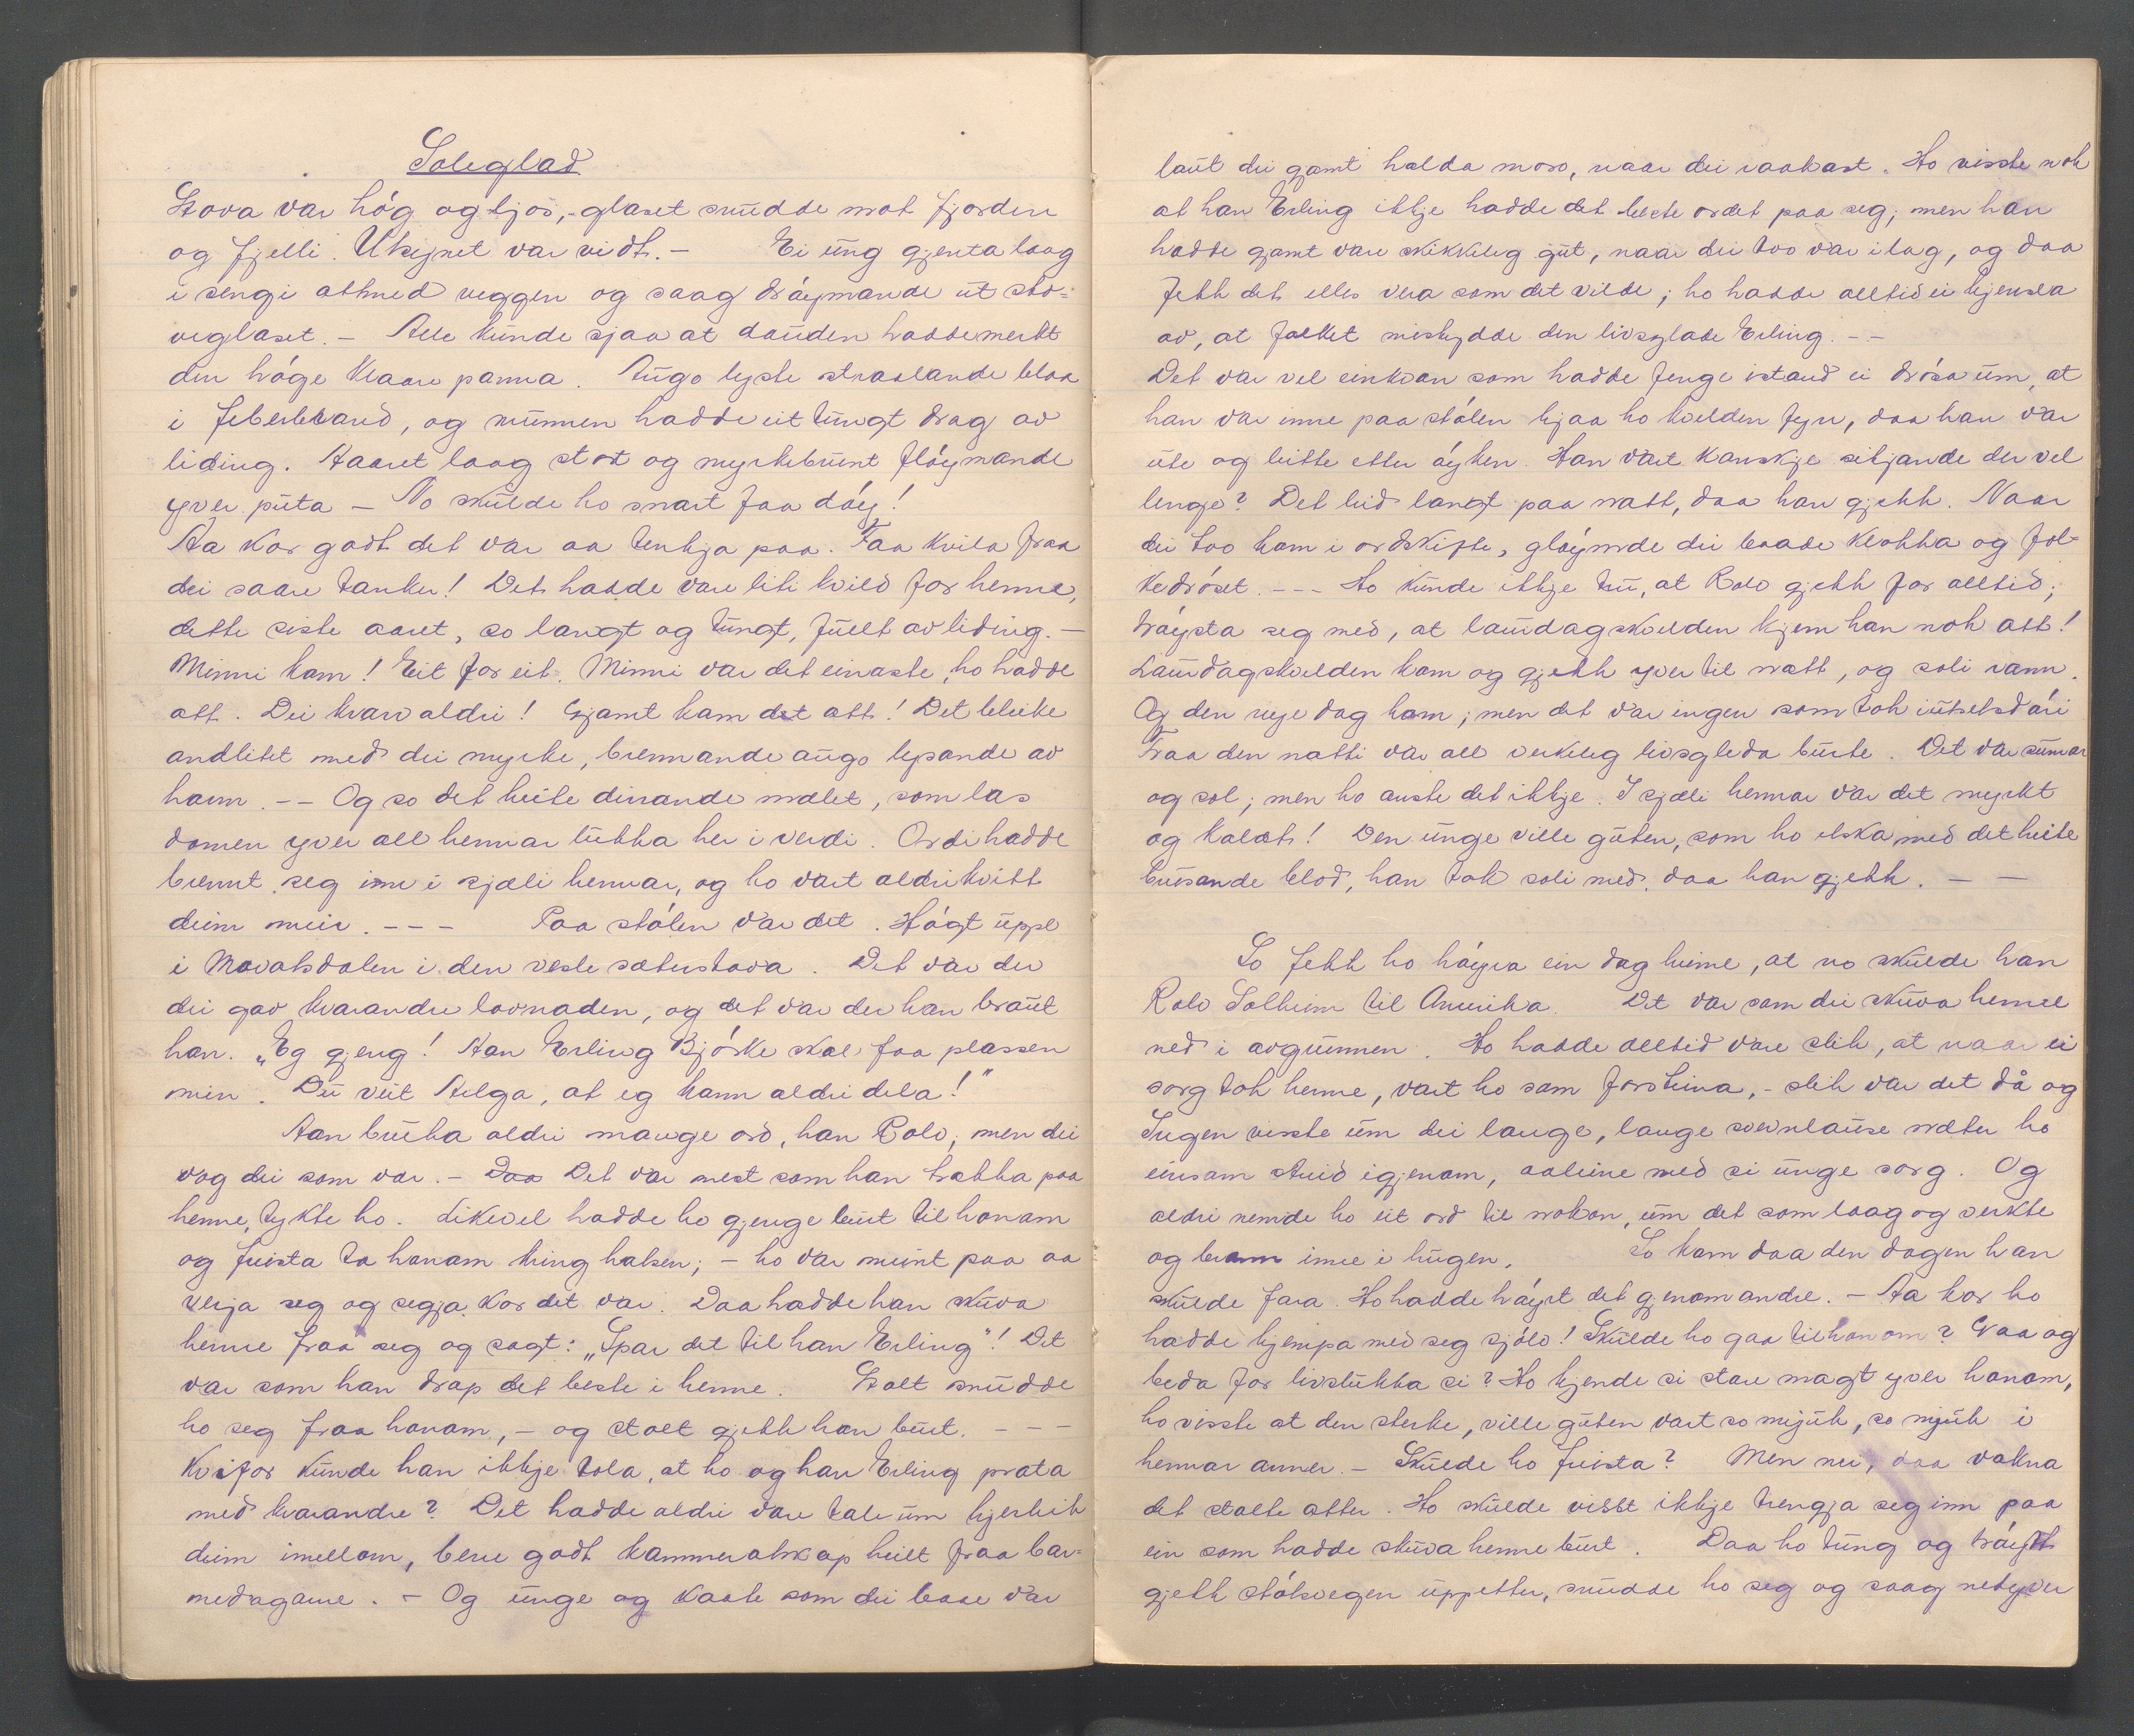 Soleglad
Stova var høg og ljos, - glaset snudde mot fjorden
og fjelli. Utsynet var vidt. - Ei ung gjenta laag
i sengi attmed veggen og saag drøymande ut sto-
veglaset. - Alle kunde sjaa at dauden hadde merkt
den høge klaare panna. Augo lyste straalande blaa
i feberbrand, og munnen hadde eit tungt drag av
liding. Haaret laag stort og myrkebrunt fløymande
yver puta - No skulde ho snart faa døy!
Aa kor godt det var aa tenkja paa. Faa kvila fraa
dei saare tankar! Det hadde vore liti kvild for henne,
dette siste aaret, so langt og tungt, fullt av liding. -
Minni kom! Eit for eit. Minni var det einaste, ho hadde
att. Dei kvarv aldri! Gjamt kom det att! Det bleike
andlitet med dei myrke, brennande augo lysande av
harm. -- Og so det heite dirrande mælet, som las
domen yver all hennar lukka her i verdi. Ordi hadde
brennt seg inn i sjæli hennar, og ho vart aldri kvitt
deim meir. --- Paa stølen var det. Høgt uppe
i Movatsdalen i den vesle sæterstova. Det var der
dei gav kvarandre lovnaden, og det var der han braut
han. „Eg gjeng! Han Erling Bjørke skal faa plassen
min. Du veit Helga, at eg kann aldri dela!"
Han bruka aldri mange ord, han Rolv, men dei
vog dei som var. - Daa Det var mest som han trakka paa
henne, tykte ho. Likevel hadde ho gjenge burt til honom
og freista ta honom kring halsen; - ho var meint paa aa
verja seg og segja kor det var. Daa hadde han skuva
henne fraa seg og sagt: „Spar det til han Erling"! Det
var som han drap det beste i henne. Stolt snudde
ho seg fraa honom, - og stolt gjekk han burt. ---
Kvifor kunde han ikkje tola, at ho og han Erling prata
med kvarandre? Det hadde aldri vore tale um kjerleik
deim imellom, berre godt kammeratskap heilt fraa bar-
nedagarne. - Og unge og kaate som dei baae var
laut dei gjamt halda moro, naar dei raakast. Ho visste nok
at han Erling ikkje hadde det beste ordet paa seg; men han
hadde gjamt vore skikkeleg gut, naar dei two var ilag, og daa
fekk det elles vera som det vilde; ho hadde alltid ei kjensla
av, at folket mistydde den livsglade Erling. --
Det var vel einkvan som hadde fenge istand ei drøsa um, at
han var inne paa stølen hjaa ho kvelden fyrr, daa han var
ute og leitte etter øyken. Han vart kanskje sitjande der vel
lenge? Det leid langt paa natt, daa han gjekk. Naar
dei two kom i ordskifte, gløymde dei baade klokka og fol-
kedrøset. --- Ho kunde ikkje tru, at Rolv gjekk for alltid;
trøysta seg med, at laurdagskvelden kjem han nok att!
Laurdagskvelden kom og gjekk yver til natt, og soli rann.
Og den nye dag kom; men det var ingen som tok i utselsdøri
Fraa den natti var all verkeleg livsgleda burte. Det var sumar
og sol; men ho anste det ikkje. I sjæli hennar var det myrkt
og kaldt! Den unge ville guten, som ho elska med det heite
brusande blod, han tok soli med, daa han gjekk. --
So fekk ho høyra ein dag heime, at no skulde han
Rolv Solheim til Amerika. Det var som dei skuva henne
ned i avgrunnen. Ho hadde alltid vore slik, at naar ei
sorg tok henne, vart ho som forsteina, - slik var det då og
Ingen visste um dei lange, lange svevnlause næter ho
einsam streid igjenom, aaleine med si unge sorg. Og
aldri nemnde ho eit ord til nokon, um det som laag og verkte
og brann inne i hugen. So kom daa den dagen han
skulde fara. Ho hadde høyrt det gjenom andre. - Aa kor ho
hadde kjempa med seg sjølv! Skulde ho gaa til honom? Gaa og
beda for livslukka si? Ho kjende si store magt yver honom,
ho visste at den sterke, ville guten vart so mjuk, so mjuk i
hennar armar. - Skulde ho freista? Men nei, daa vakna
det stolte atter. Ho skulde visst ikkje trengja seg inn paa
ein som hadde skuva henne burt. Daa ho tung og trøytt
gjekk stølsvegen uppetter, snudde ho seg og saag nedyver